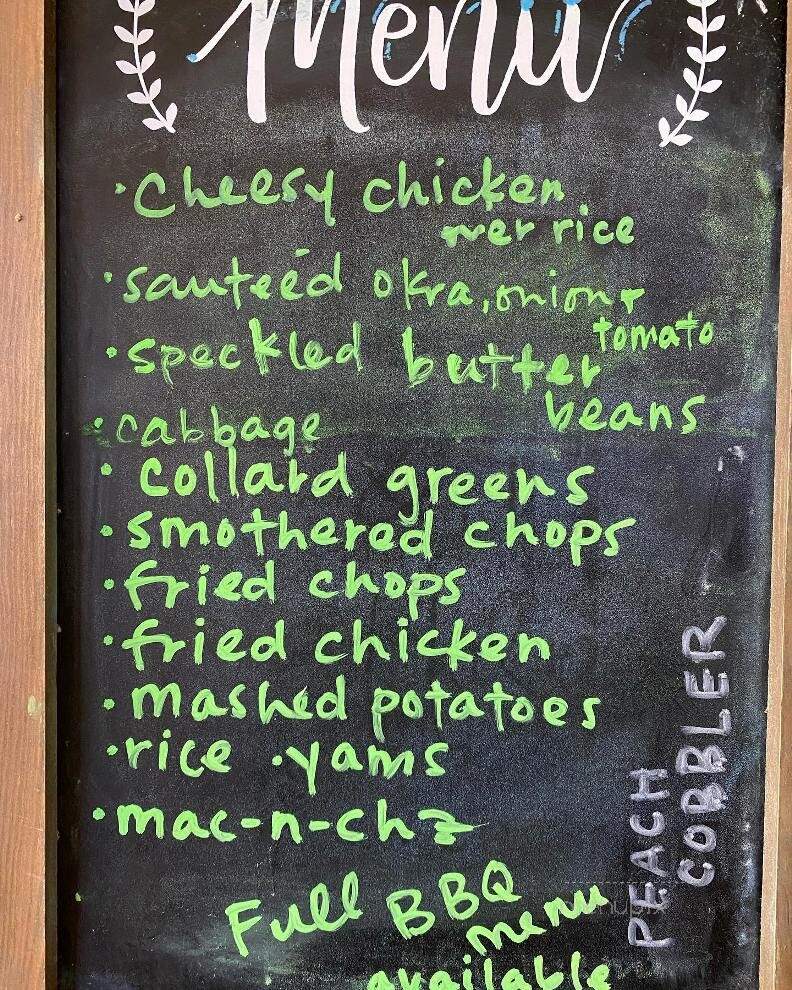 Menu
·Cheesy chicken
over rice
·sauteéd okra, onion +
tomato
·speckled butter
beans
·cabbage
·collard greens
·smothered chops
·fried chops
·fried chicken
·mashed potatoes
·rice ·yams
·mac-n-chz
Full BBQ
menu
available
PEACH
COBBLER